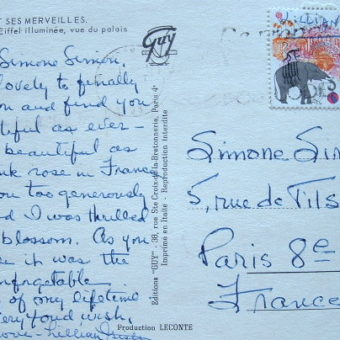 ET SES MERVEILLES.
Eiffel illuminée, vue du palais
Simone Simon,
lovely to finally
on and find you
tiful as ever –
beautiful as
k rose in France
ou too generously
d I was thrilled
blossom. As you
e it was the
nforgetable
s of my lifetime
ery good wish,
ove – Lillian
Guy
Editions "GUY" - 36, rue Ste Croix-de-la-Bretonnerie, Paris 4e
Imprimé en Italie Reproduction Interdite
Production LECONTE
Simone Sim
5, rue de Tils
Paris 8e
France